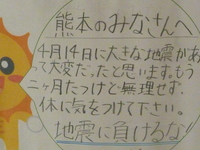 熊本のみなさんへ
4月14日に大きな地震があ
って大変だったと思います。もう
二ヶ月たつけど無理せず、
体に気をつけて下さい。
地震に負けるな!